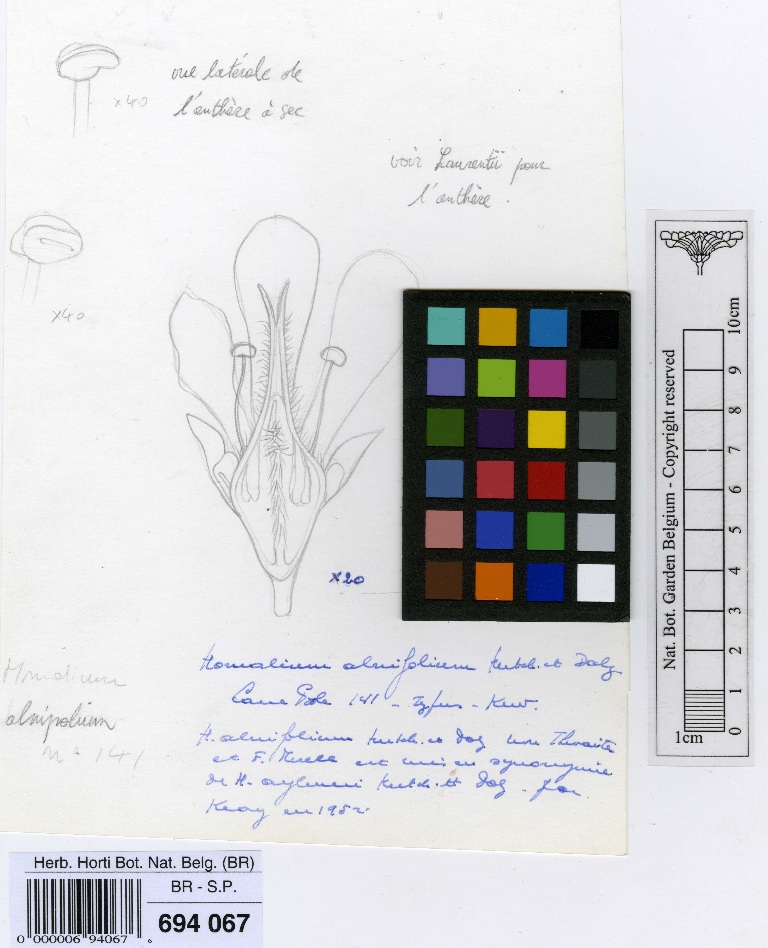 vue latérale de
l'anthère à sec
x40
voir Laurentii pour
l'anthère.
x40
x20
Homalium alnifolium Hutch. et Dalz
Lane Pole 141 - Typus - Kew.
H. alnifolium Hutch. et Dalz non Thwaites
et F. Muell est mis en synonymie
de H. aylmeri Hutch. et Dalz. par
Keay en 1952
Homalium
alnifolium
n° 141
Nat. Bot. Garden Belgium - Copyright reserved
10cm
9
8
7
6
5
4
3
2
1
0
1cm
Herb. Horti Bot. Nat. Belg. (BR)
BR - S.P.
694 067
0 000006 94067